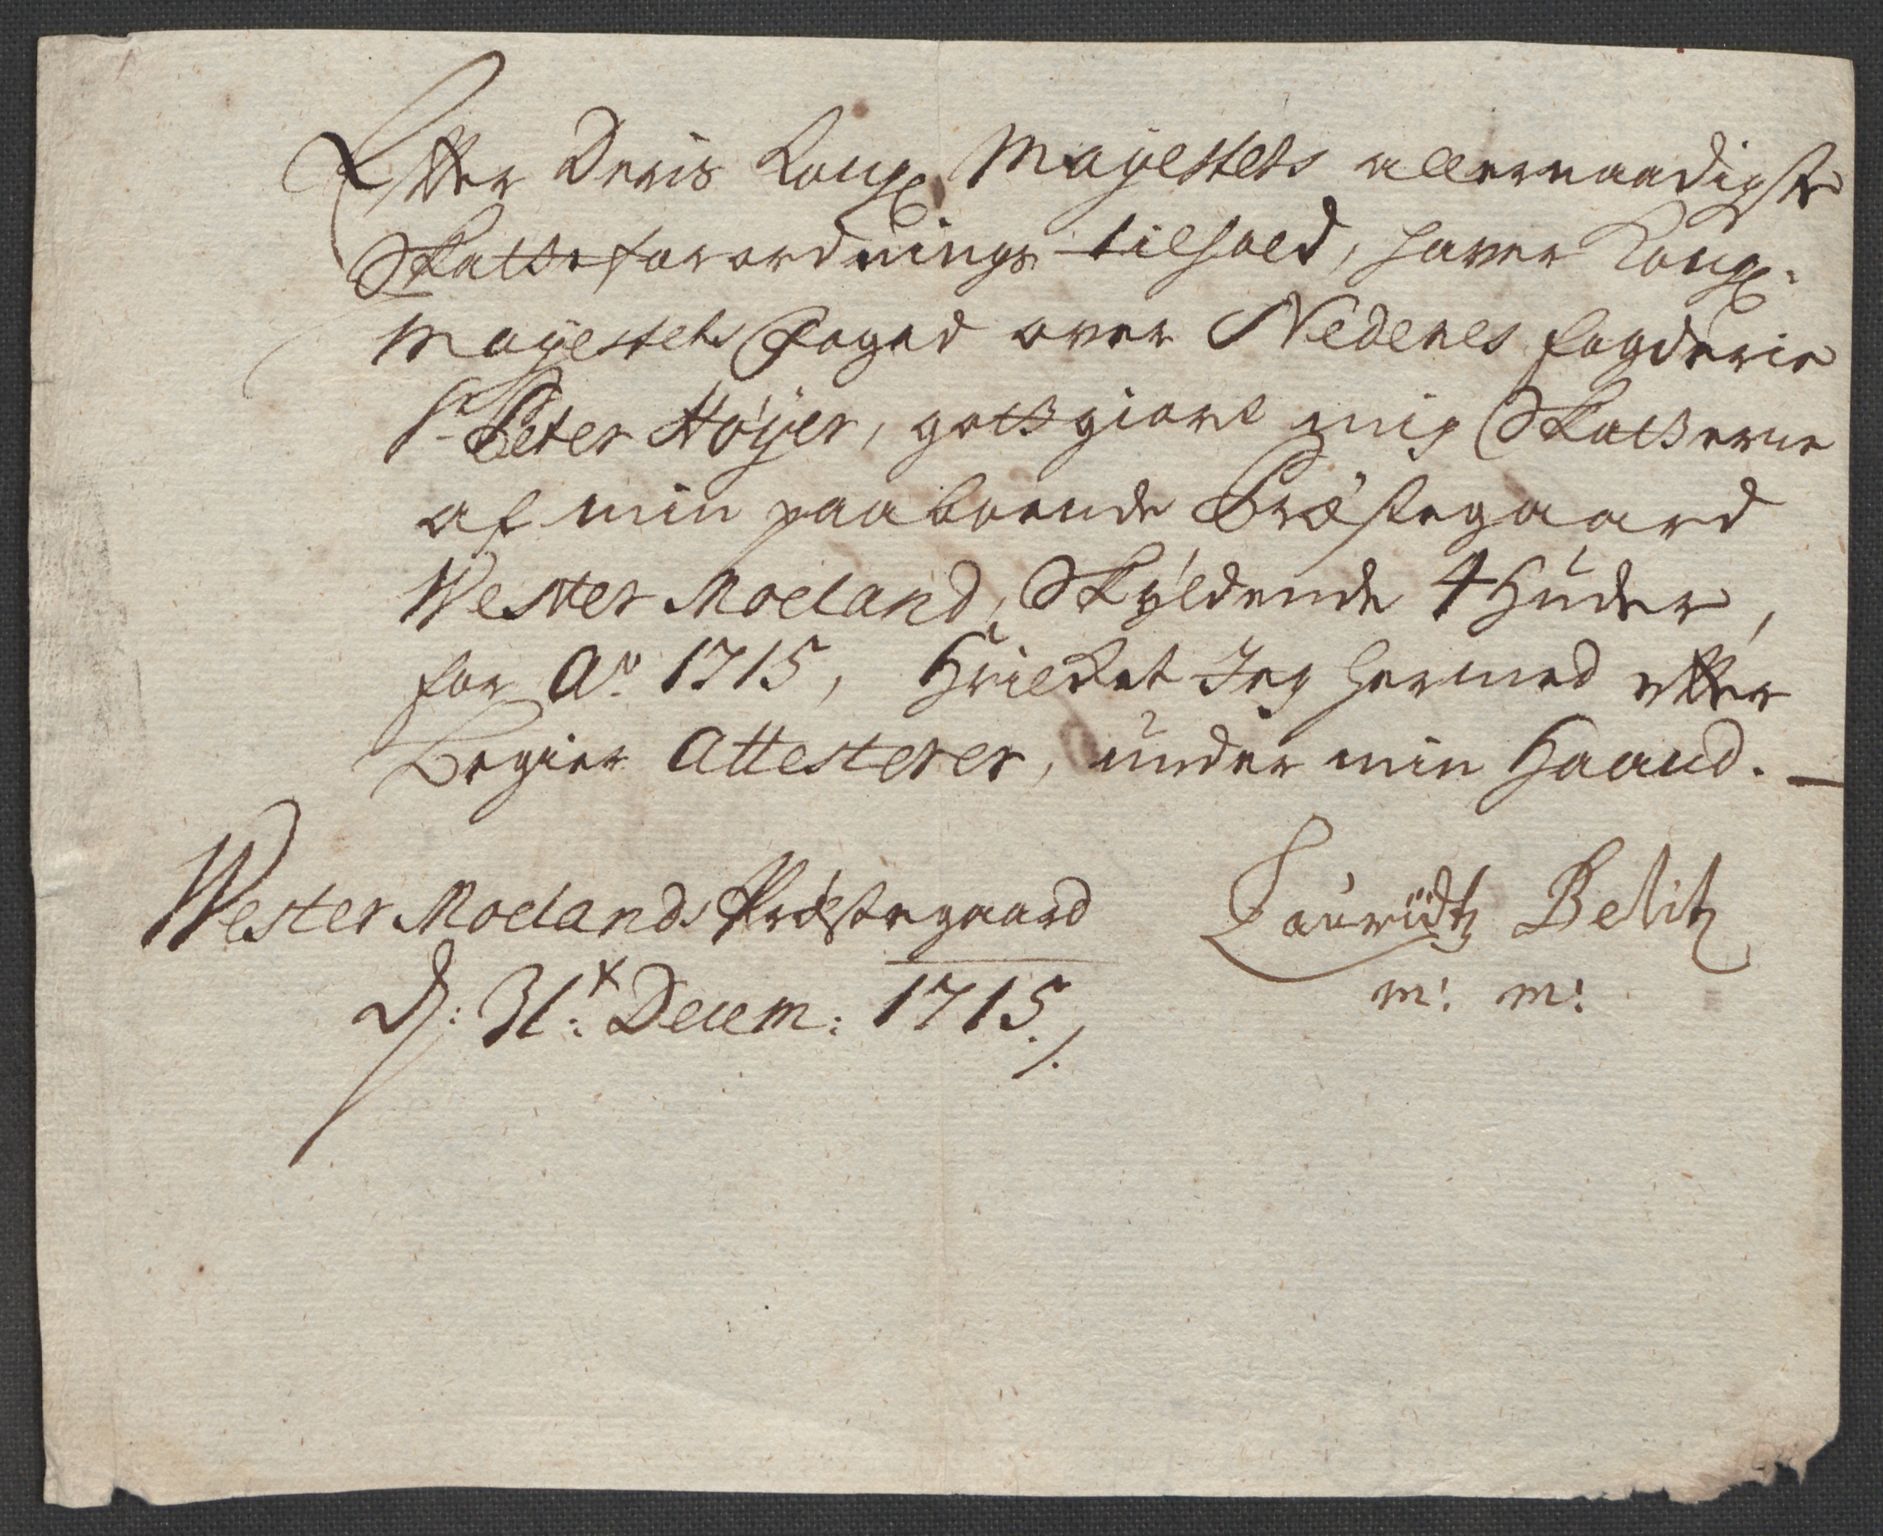 Efter Deris Kongl. Mayestets allernaadigste
Skatteforordnings tilhold, hafver Kongl.
Mayestets Foged over Nedenes fogderie
Sr. Peter Høyer, gotgiort mig Skatterne
af min paaboende Præstegaard
Wester Moeland, Skyldende 4 Huder,
for Ao. 1715, Hvilket Jeg hermed efter
Begier Attesterer, under min Haand. —
Wester Moelands Præstegaard
d: 31t: Decem: 1715 ./.
Lauridtz Belitz
m: m: